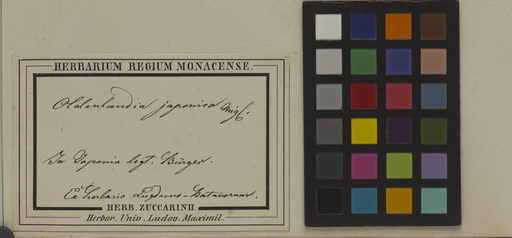 HERBARIUM REGIUM MONACENSE.
Oldenlandia japonica Miq.
In Japonia legt. Bürger.
Ex herbario Lugduno-Batavorum.
HERB. ZUCCARINII.
Herbar. Univ. Ludov. Maximil.